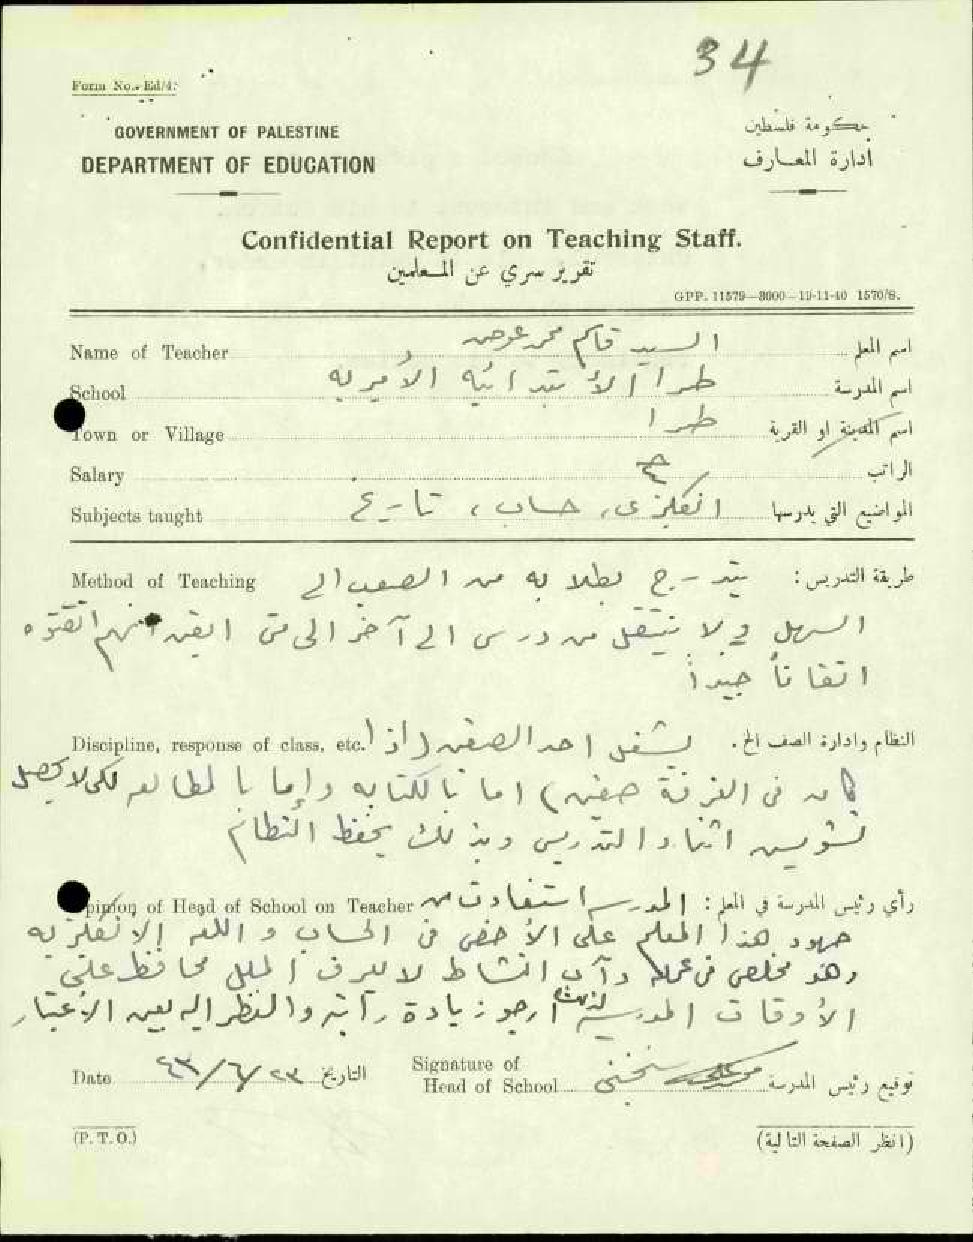 34
Form No. Ed/4.
GOVERNMENT OF PALESTINE
حكومة فلسطين
DEPARTMENT OF EDUCATION
ادارة المعارف
Confidential Report on Teaching Staff.
تقرير سري عن المعلمين
GPP. 11579—3000—19-11-40 1570/S.
Name of Teacher السيد قاسم محمد عوض اسم المعلم
School طيرا الأبتدائيه الأميريه اسم المدرسة
Town or Village طيرا اسم المدينة او القرية
Salary الراتب
Subjects taught انكليزي، حساب، تاريخ المواضيع التي يدرسها
Method of Teaching يتدرج بطلابه من الصعب الى طريقة التدريس:
السهل ولا ينتقل من درس الى آخر الى متى ايقن انهم اتقنوه
اتقاناً جيداً
Discipline, response of class, etc. يشغل احد الصفين (اذا النظام وادارة الصف الخ.
كان في الغرفة صفين) اما بالكتابه وإما بالمطالعه لكي لا يحصل
تشويش اثناء التدريس وبذلك يحفظ النظام
Opinion of Head of School on Teacher المدرسه استفادت من رأي رئيس المدرسة في المعلم:
جهود هذا المعلم على الأخص في الحساب و اللغه الإنكليزيه
وهو مخلص في عمله دآئب النشاط لا يعرف الملل محافظ على
الأوقات المدرسيه لذلك ارجو زيادة راتبه والنظر اليه بعين الأعتبار
Date ٢٣/٦/٤٣ التاريخ
Signature of
Head of School توقيع رئيس المدرسة
(P. T. O.)
(انظر الصفحة التالية)